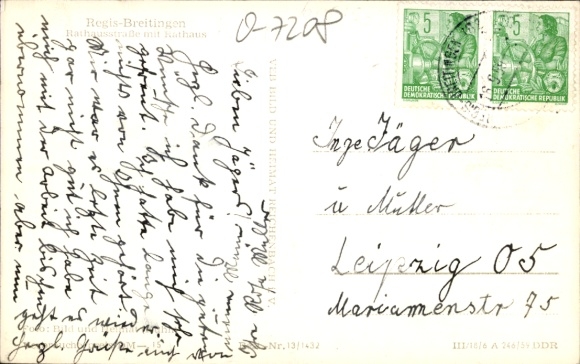 Regis-Breitingen
Rathausstraße mit Rathaus
O-7208
5
DEUTSCHE
DEMOKRATISCHE REPUBLIK
5
DEUTSCHE
DEMOKRATISCHE REPUBLIK
Lieben Jägers!
Hrzl. Dank für die guten
Wünsche ich habe mich sehr
gefreut. Ich hatte lange
nichts von Ihnen gehört
Mir war es letzte Zeit
gar nicht gut ich habe
mich mit der Arbeit bischen
übernommen aber nun
geht es wieder
Hrzl. Grüße auch von
Inge Jäger
u Mutter
Leipzig O5
Mariannenstr 75
VEB BILD UND HEIMAT REICHENBACH
Foto: Bild und
15
Nr. 13/1432
III/18/6 A 246/59 DDR